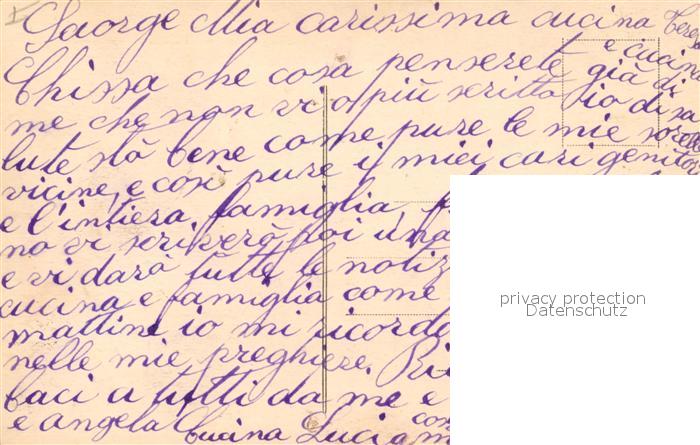 George Mia carissima cucina Teresa
e cucina
Chissa che cosa penserete già di
me che non vi o più scritto io di sa
lute stò bene come pure le mie sorelle
vicine, e così pure i miei cari genitori
e l'intiera famiglia,
no vi scriverò poi una
e vi darà tutte le notiz
cucina e famiglia come
mattine io mi ricordo
nelle mie preghiere. Ri
baci a tutti da me e
e angela cucina Lucia
privacy protection
Datenschutz